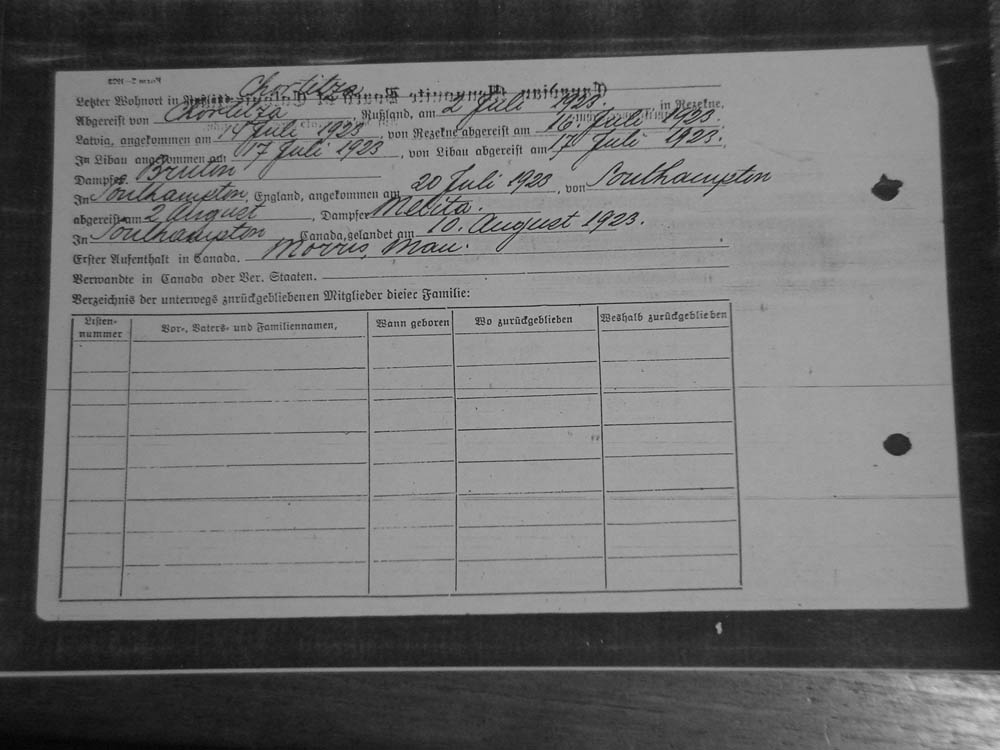 Letzter Wohnort in Rußland Chortitza
Abgereist von Chortitza, Rußland, am 2 Juli 1923. in Rezekne,
Latvia, angekommen am 14 Juli 1923, von Rezekne abgereist am 16. Juli 1923.
In Libau angekommen am 17 Juli 1923, von Libau abgereist am 17 Juli 1923.
Dampfer Bruton
In Southampton, England, angekommen am 20 Juli 1923, von Southampton
abgereist am 2 August, Dampfer Melita.
In Southampton Canada, gelandet am 10. August 1923.
Erster Aufenthalt in Canada. Morris, Man.
Verwandte in Canada oder Ver. Staaten.
Verzeichnis der unterwegs zurückgebliebenen Mitglieder dieser Familie:
Listen-nummer Vor-, Vaters- und Familiennamen, Wann geboren Wo zurückgeblieben Weshalb zurückgeblieben